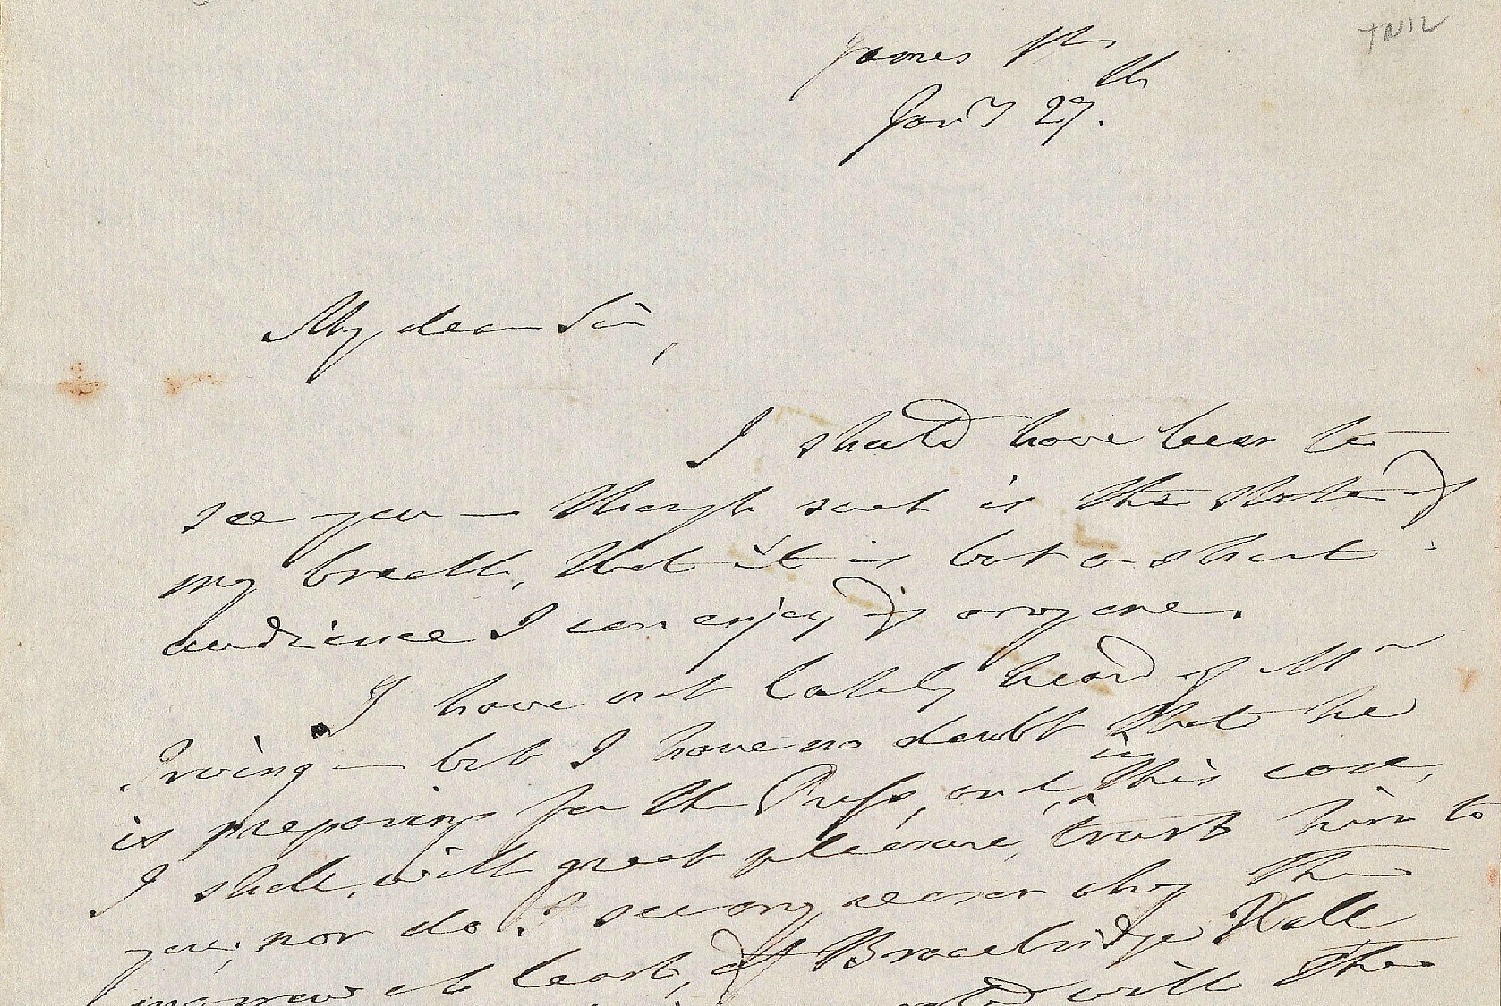 James St
Jany 27th.
My dear Sir,
I should have been to
see you — though such is the state of
my breath, that it is but a short
audience I can enjoy of any one.
I have not lately heard of Mr
Irving — but I have no doubt that he
is preparing for the Press, and, in this case,
I shall, with great pleasure, trust him to
you; nor do I see any reason why the
at least, of Bracebridge Hall
with the